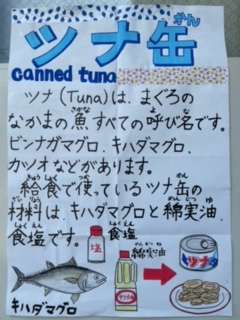 ツナ缶
かん
canned tuna
ツナ(Tuna)は、まぐろの
なかまの魚すべての呼び名です。
ビンナガマグロ、キハダマグロ、
カツオなどがあります。
給食で使っているツナ缶の
材料は、キハダマグロと綿実油、
食塩です。
食塩
塩
綿実油
ツナ
キハダマグロ